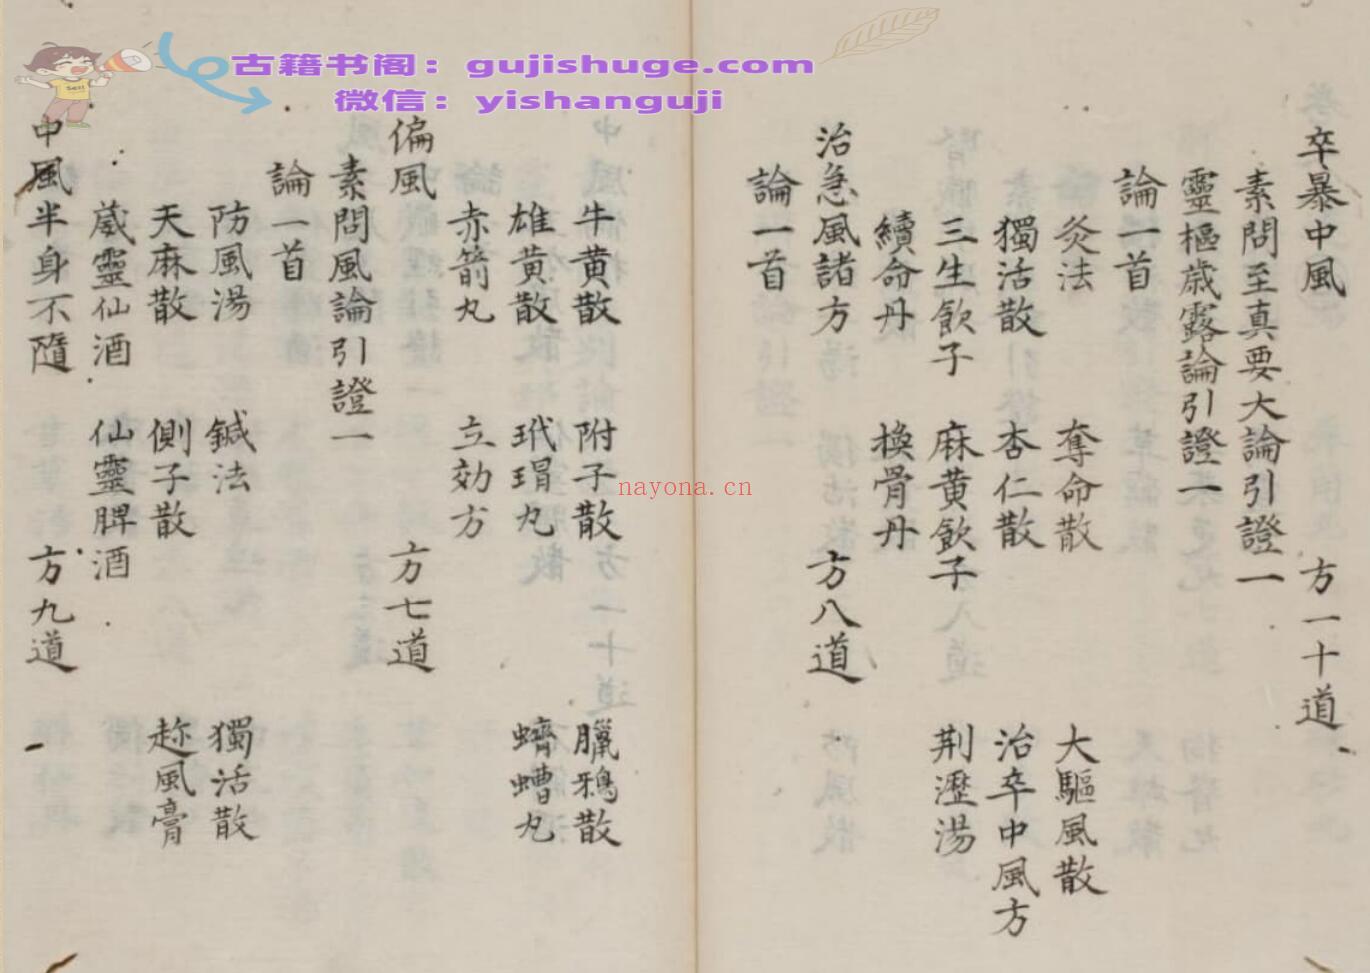 古籍书阁：gujishuge.com
微信：yishanguji
nayona.cn
卒暴中風 方一十道
素問至真要大論引證一
靈樞歲露論引證一
論一首
灸法 奪命散 大驅風散
獨活散 杏仁散 治卒中風方
三生飲子 麻黄飲子 荆瀝湯
續命丹 換骨丹
治急風諸方 方八道
論一首
牛黄散 附子散 臘鴉散
雄黄散 玳瑁丸 蠐螬丸
赤箭丸 立効方
偏風 方七道
素問風論引證一
論一首
防風湯 鍼法 獨活散
天麻散 側子散 趂風膏
葳靈仙酒 仙靈脾酒
中風半身不隨 方九道